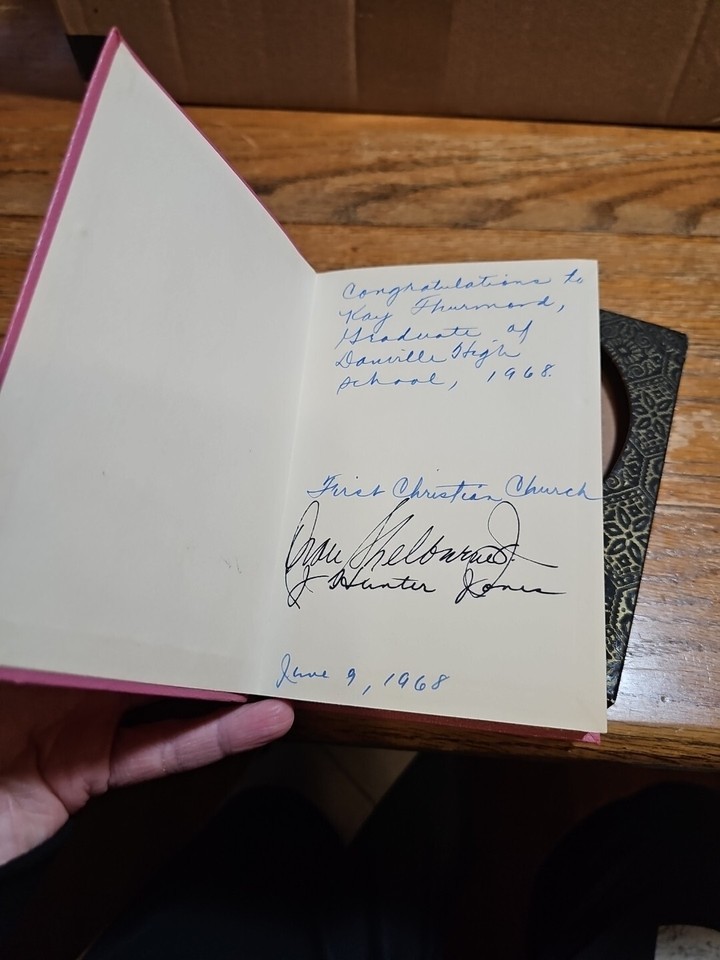 Congratulations to
Kay Thurmond,
Graduate of
Danville High
School, 1968.
First Christian Church
Shelburne Jr.
J Hunter Jones
June 9, 1968